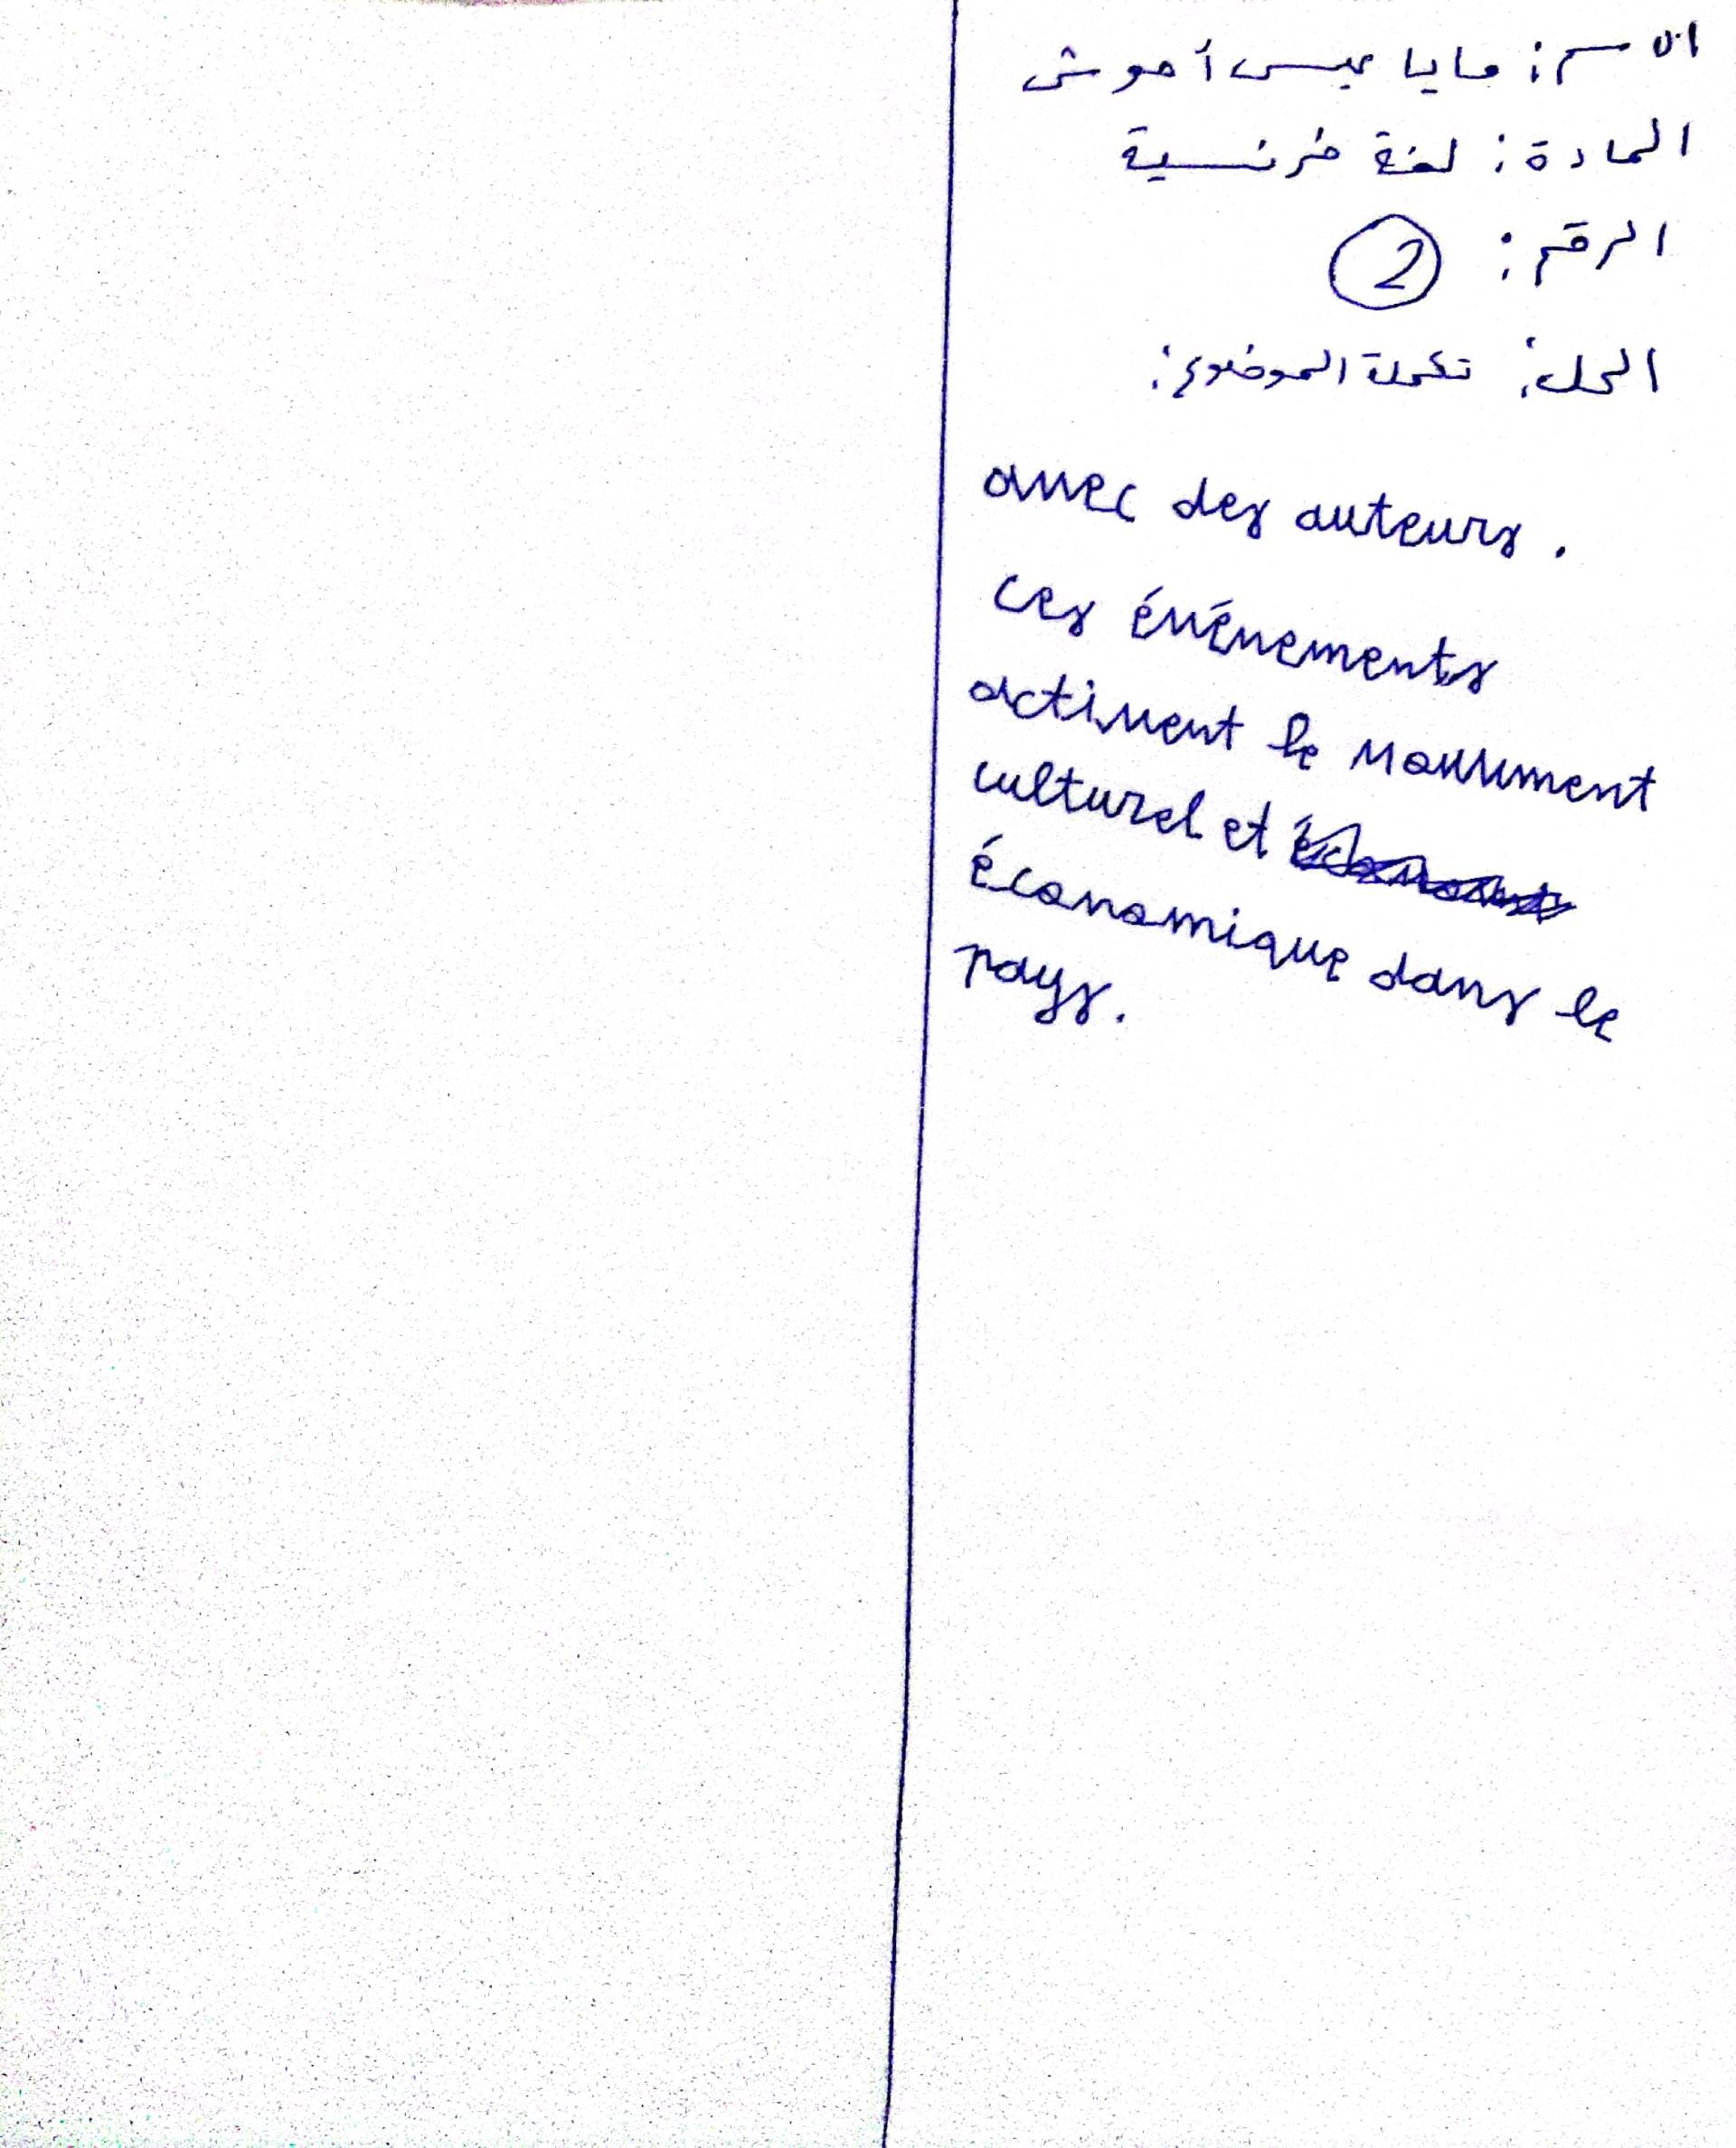 الاسم: مايا عيسى أحوش
المادة: لغة فرنسية
الرقم: 2
الحل: تكملة الموضوع:
avec des auteurs.
Ces événements
activent le mouvement
culturel et
économique dans le
pays.